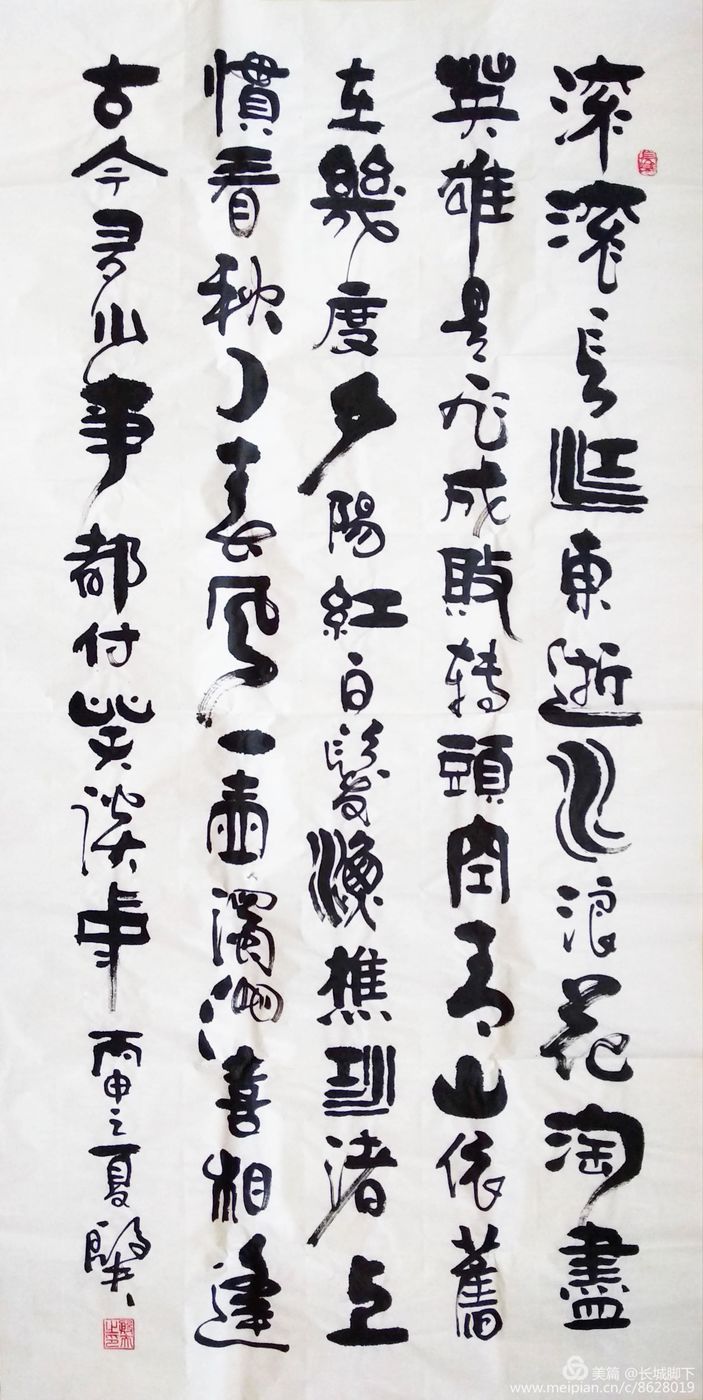 滚滚長江東逝水浪花淘盡
英雄是非成敗转頭空青山依舊
在幾度夕陽紅白髮漁樵江渚上
慣看秋月春風一壺濁酒喜相逢
古今多少事都付笑談中 丙申之夏
美篇 @长城脚下
www.meipian.cn/c/8628019